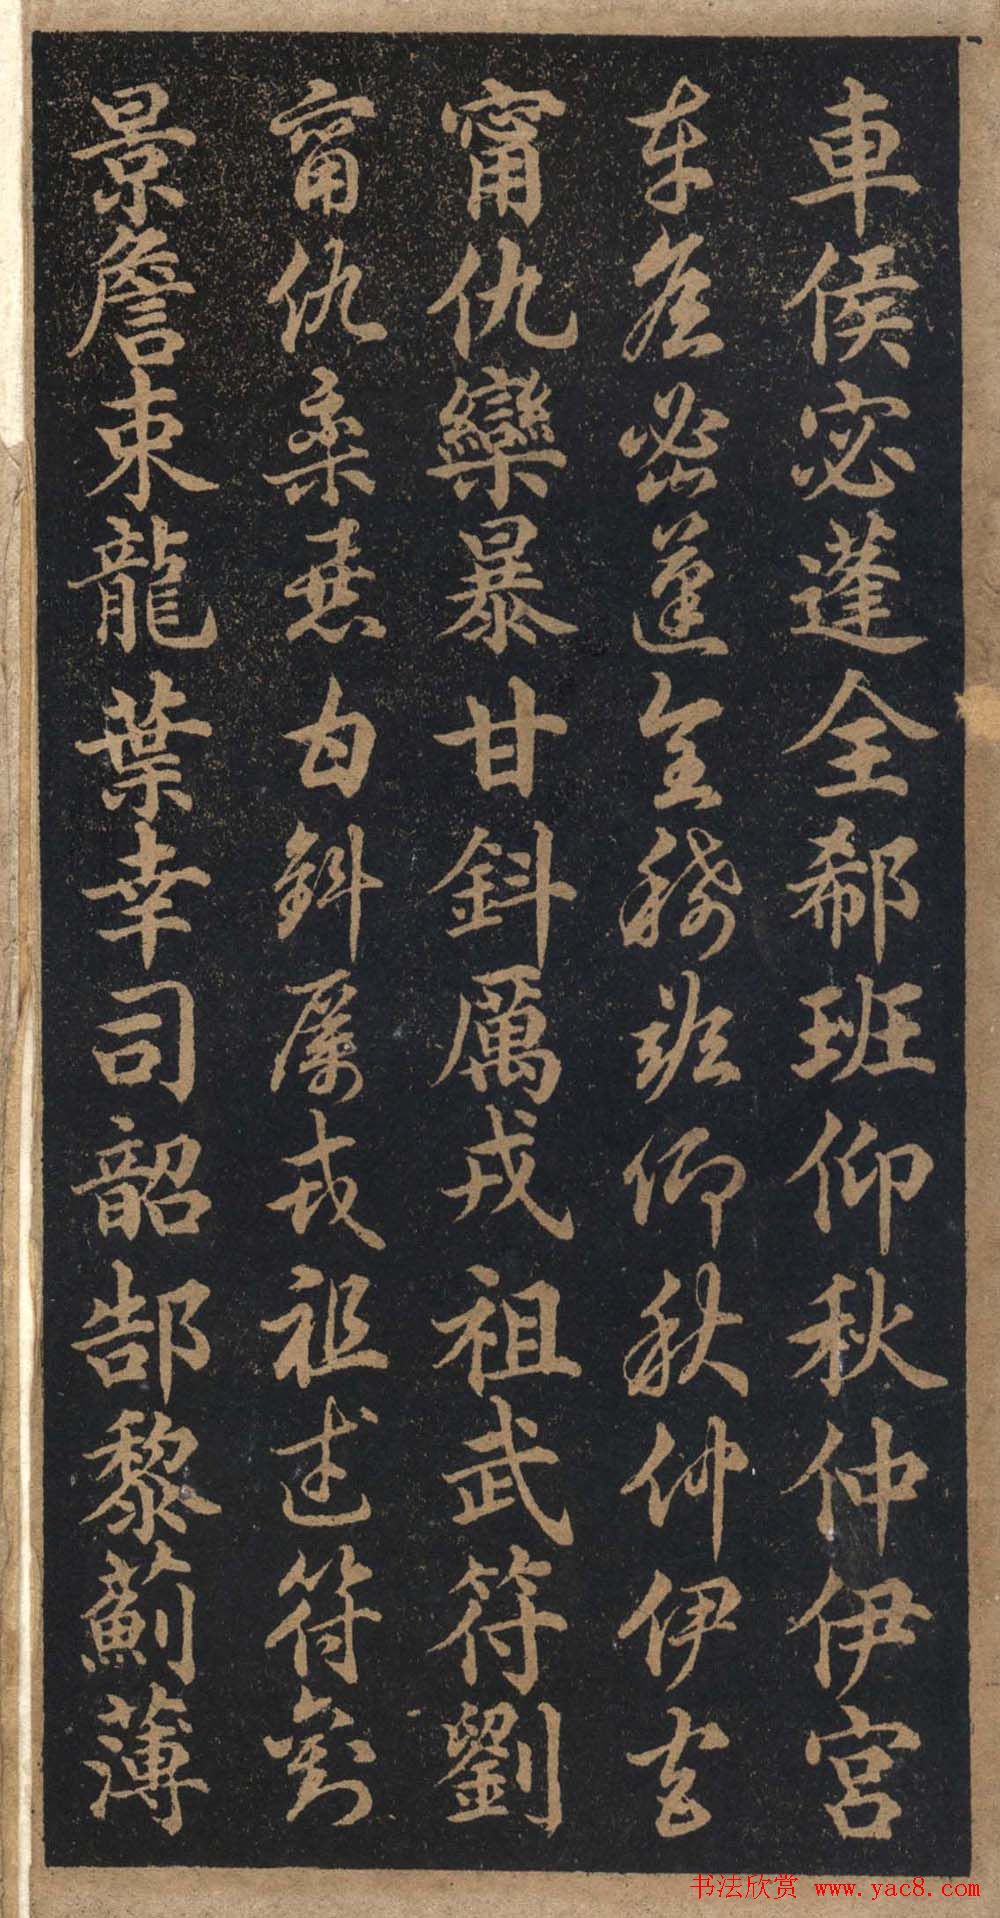 車侯宓蓬全郗班仰秋仲伊宮
車侯宓蓬全郗班仰秋仲伊宮
甯仇欒暴甘鈄厲戎祖武符劉
甯仇欒暴甘鈄厲戎祖武符劉
景詹束龍葉幸司韶郜黎薊薄
书法欣赏 www.yac8.com